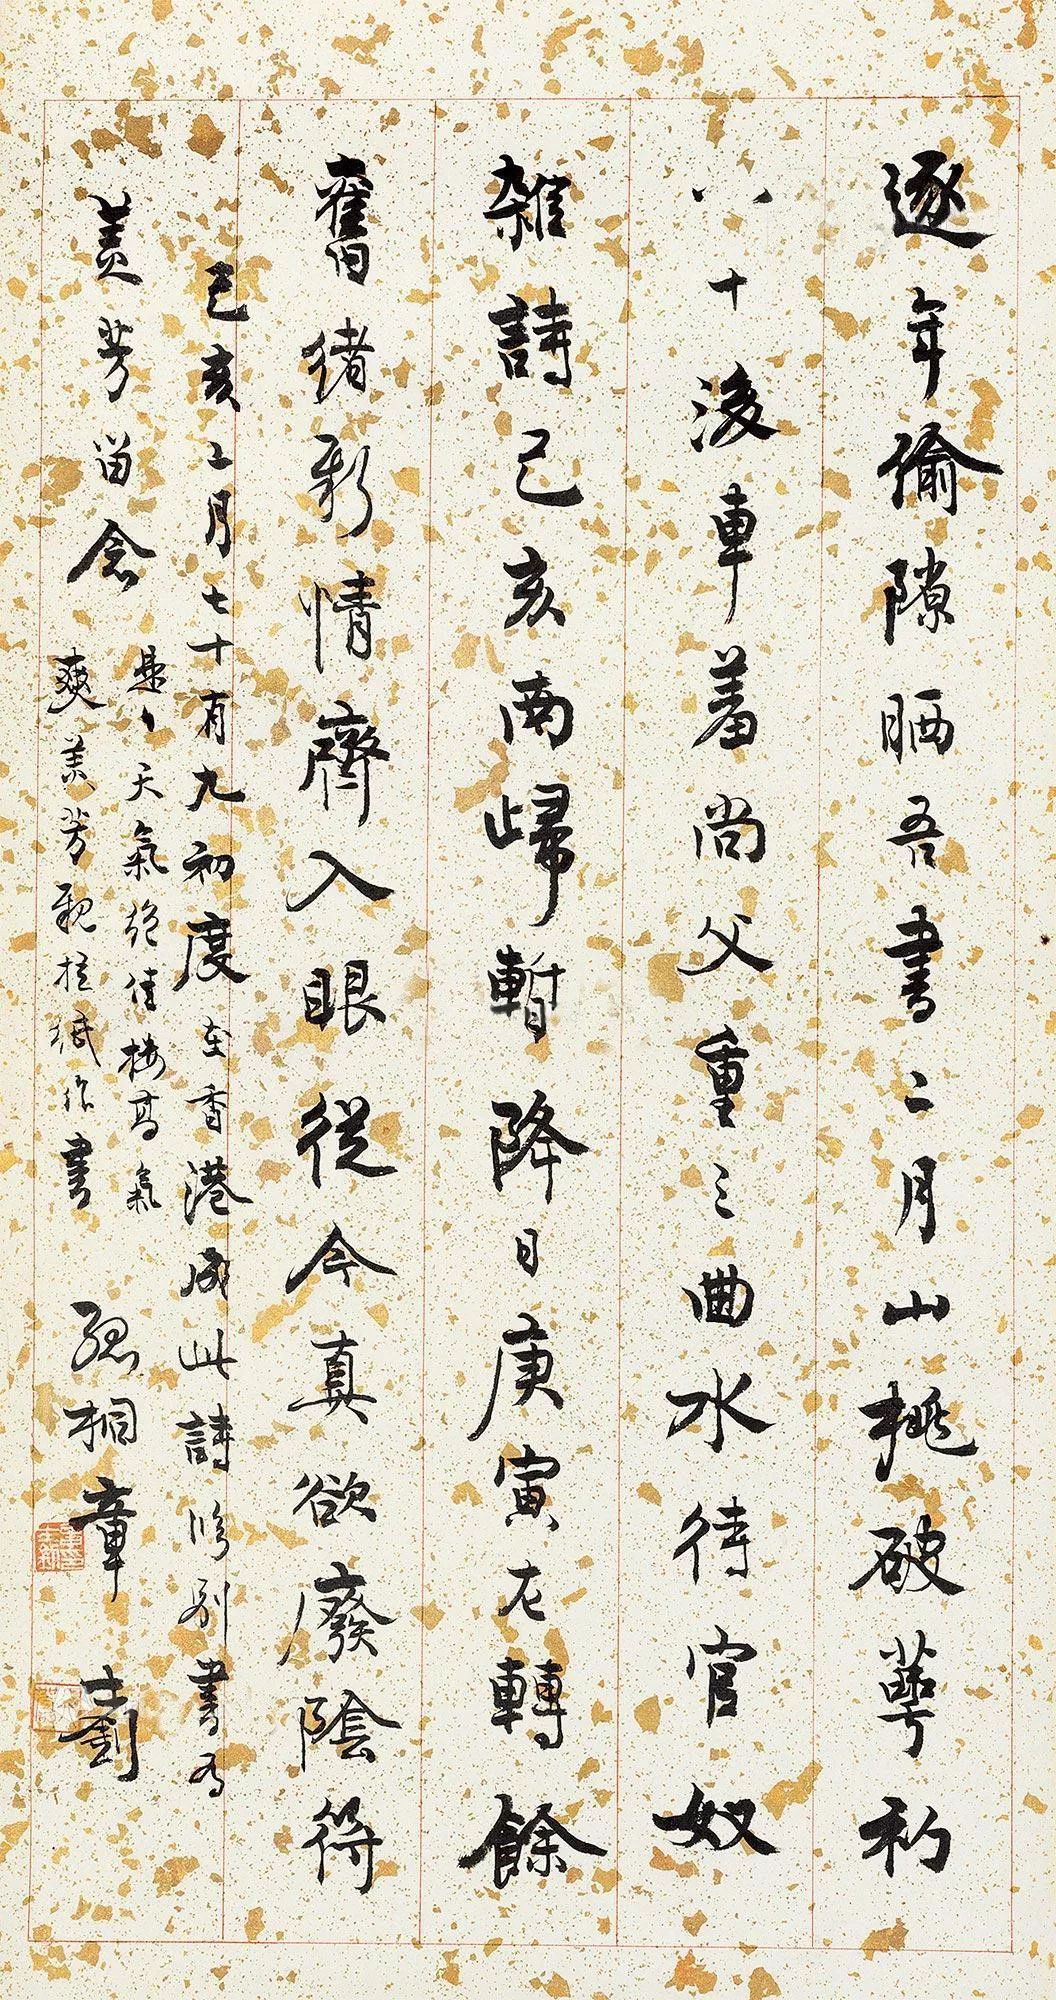 逐年偷隙晒吾書二月山桃破萼初
八十後車羞尚父重三曲水待官奴
雜詩己亥南歸暫降日庚寅左轉餘
舊緒新情齊入眼從今真欲廢陰符
己亥二月七十有九初度在香港成此詩後別書為
美芳留念
是日天氣絕佳樓高氣
爽美芳親拉紙作書
孤桐章士釗